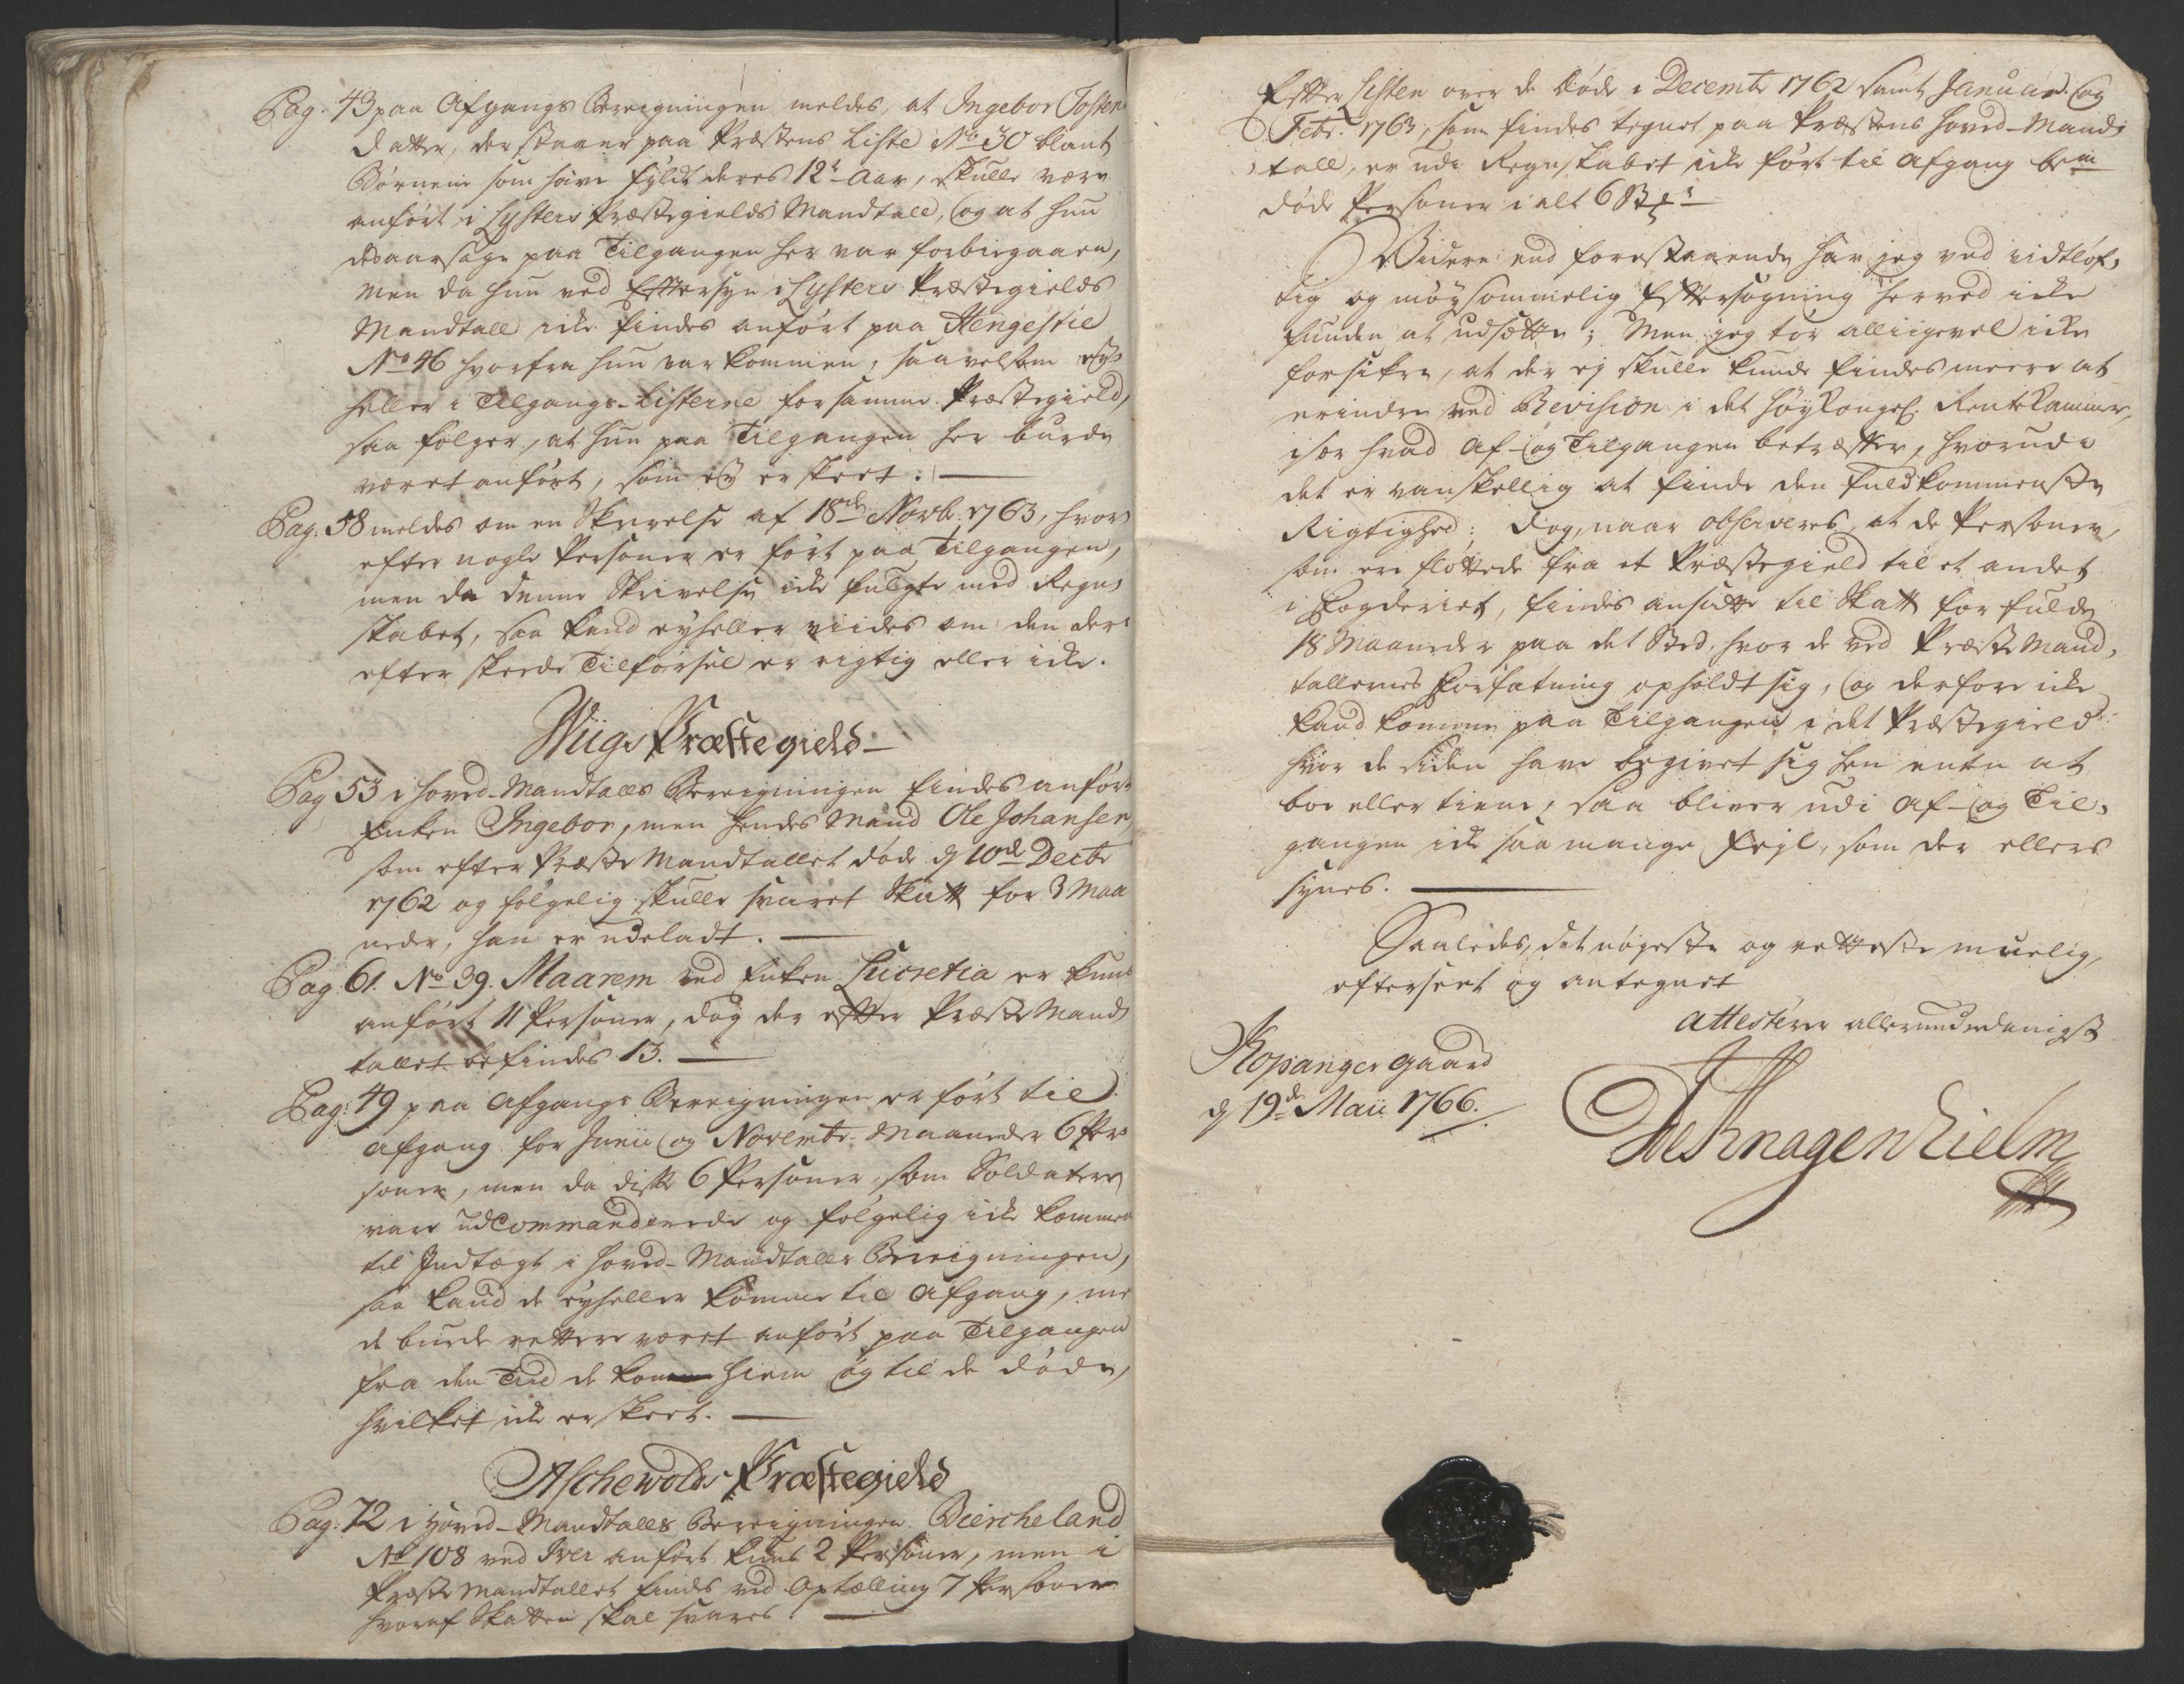 Pag. 43 paa Afgangs Beregningen meldes, at Ingebor Tosten
datter, der staaer paa Præstens Liste No 30 blant
Børnene som have fyldt deres 12te Aar, skulle være
anført i Lysters Præstegields Mandtall, og at hun
desaarsage paa Tilgangen her var forbiegaaen,
men da hun ved Eftersyn i Lysters Præstegields
Mandtall icke findes anført paa Stengestie
No 46 hvorfra hun var kommen, saavelsom ey
heller i Tilgangs-Listerne for samme Præstegield,
saa følger, at hun paa Tilgangen her burde
været anført, som ey er skeet.
Pag. 58 meldes om en Skrivelse af 18de Novbr. 1763, hvor
efter nogle Personer er ført paa Tilgangen,
men da denne Skrivelse icke fulgte med Regn-
skabet, saa kand eyheller viides om den der-
efter skeede Tilførsel er rigtig eller icke.
Wiigs Præstegield
Pag 53 i Hoved-Mandtalls Beregningen findes anført
Enken Ingebor, men hendes Mand Ole Johansen
som efter Præste Mandtallet døde d 10de Decbr
1762 og følgelig skulle svaret Skatt for 3 Maa
neder, han er udeladt.
Pag. 61. No 39. Maarem ved Enken Lucretia er kuns
anført 11 Personer, dog der efter Præste Mand
tallet befindes 13.
Pag: 49 paa Afgangs Beregningen er ført til
Afgang for Junii og Novembr. Maaneder 6 Per
soner, men da disse 6 Personer, som Soldater
vare udCommanderede og følgelig icke kommen
til Indtægt i Hoved-Mandtalls Beregningen,
saa kand de eyheller komme til Afgang, me
de burde rettere været anført paa Tilgangen
fra den Tid de kom hiem og til de døde,
hvilket icke er skeet.
Aschewolds Præstegield
Pag: 72 i Hoved-Mandtalls Beregningen Biercheland
No 108 ved Iver anført kuns 2 Personer, men i
Præste Mandtallet findes ved Optælling 7 Personer
hvoraf Skatten skal svares
Efter Listen over de døde i Decembr 1762 samt Januar. og
Febr. 1763, som findes tegnet paa Præstens Hoved-Mand-
tall, er udi Regnskabet icke ført til Afgang bem
døde Personer i alt 6 St
Videre end forestaaende har jeg ved vidtløf-
tig og møysommelig Eftersøgning herved icke
funden at udsætte; Men jeg tør alligevel icke
forsikre, at der ej skulle kunde findes meere at
erindre ved Revision i det høyKongel. RenteKammer,
især hvad Af- og Tilgangen betræffer, hvorudi
det er vanskellig at finde den fuldkommenste
Rigtighed: dog, naar observeres, at de Personer,
som ere fløttede fra et Præstegield til et andet
i Fogderiet, findes ansatte til Skatt for fulde
18 Maaneder paa det Sted, hvor de ved Præste Mand-
tallernes Forfatning opholdt sig, og derfore icke
kand komme paa Tilgangen i det Præstegield
hvor de siden have begivet sig hen enten at
boe eller tiene, saa bliver udi Af- og Til-
gangen icke saa mange Fejl, som der ellers
synes.
Saaledes, det nøyeste og retteste muelig,
efterseet og antegnet
attesterer allerunderdanigst
Kopanger gaard
d 19de Maii 1766.
de Knagenhielm